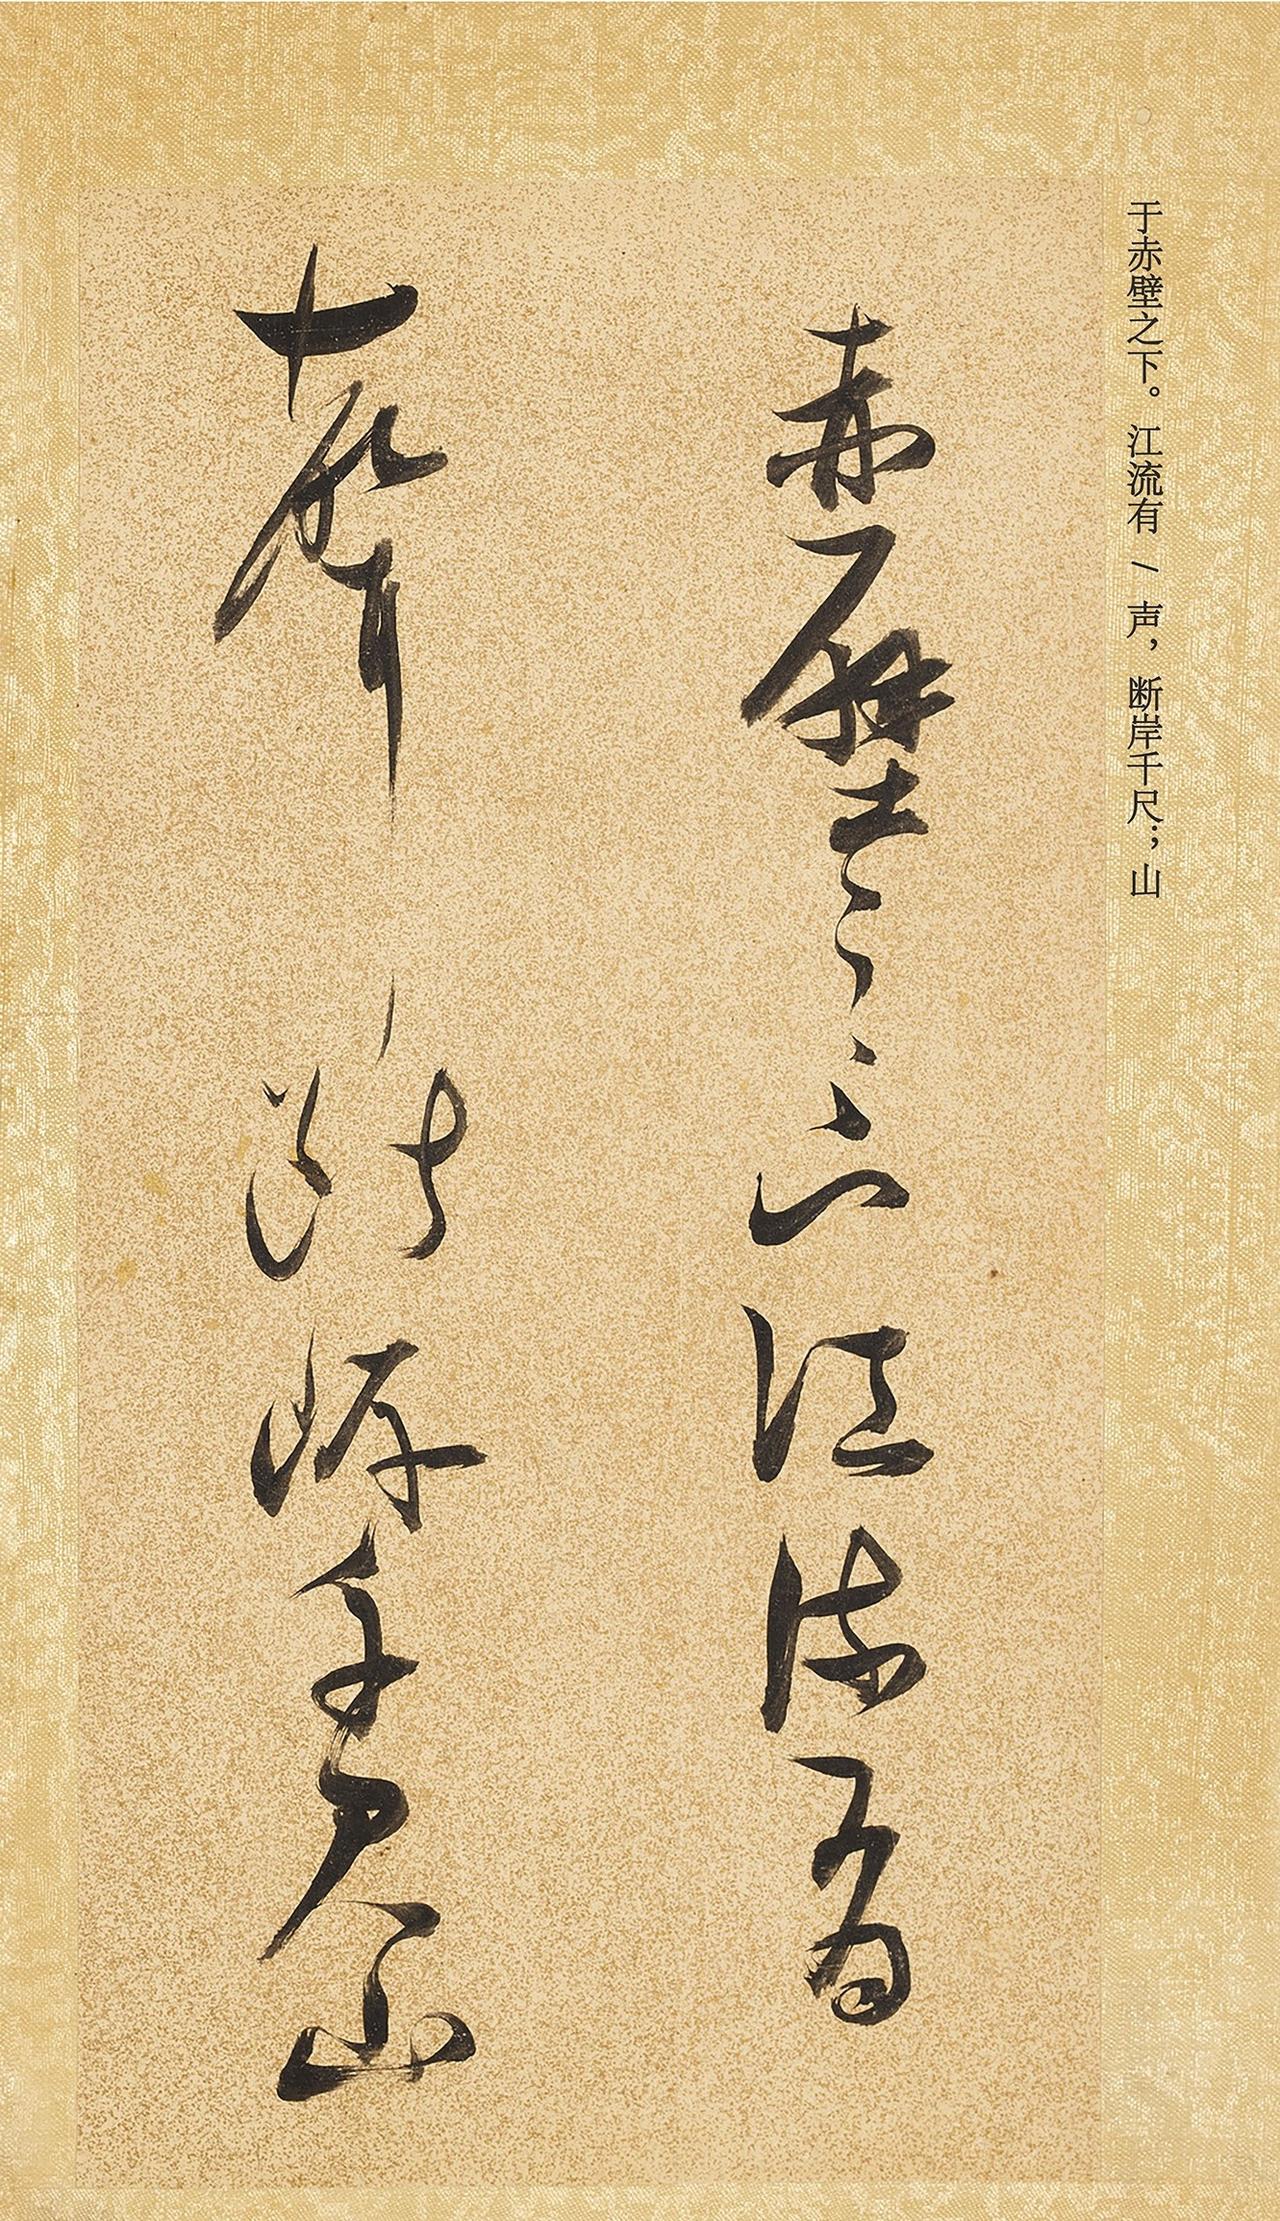 于赤壁之下。江流有/声，断岸千尺；山
赤壁之下江流有
聲斷岸千尺山